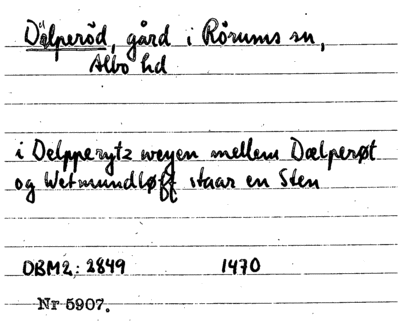 Dälperöd, gård i Rörums sn,
Albo hd
i Delpperytz weyen mellem Dælperøt
og Wetmundløff staar en Sten
DBM2: 2849 1470
Nr 5907.